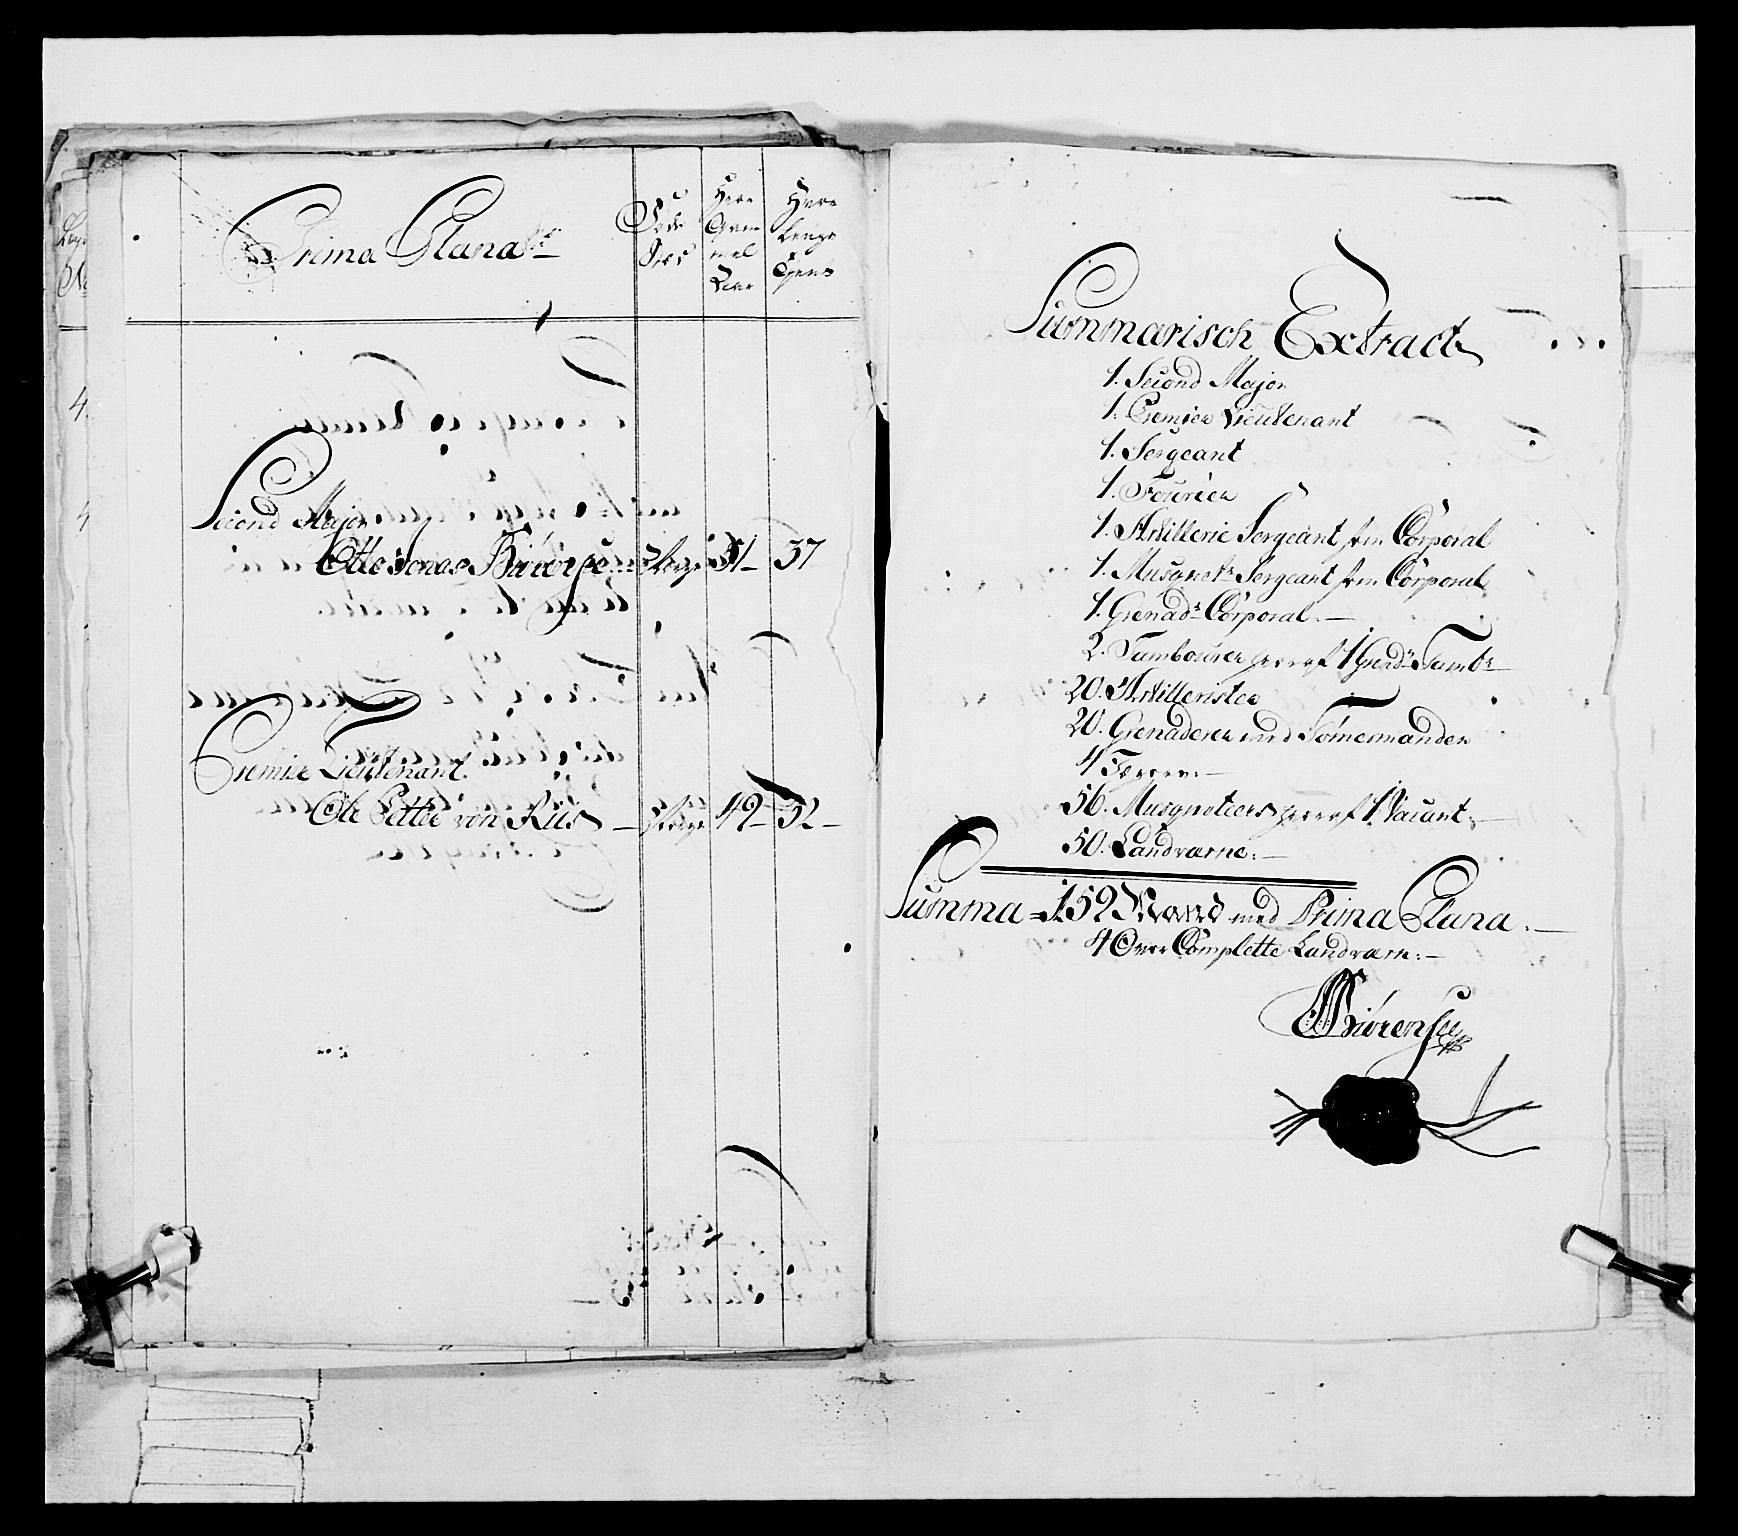 Prima Plana
Føde
Sted
Hvor
Gam
mel
Leng
Tient
Second Major
Otte Jonas Biørnsen Norge 51 37
Premier Lieutenant
Ole Petter von Riis Norge 49 32
4.
4
Summarisch Extract
1. Second Major
1. Premier Lieutenant
1. Sergeant
1. Fourier
1. Artillerie Sergeant som Corporal
1. Musquets Sergeant som Corporal
1. Grenadr Corporal.
2. Tambourer hvoraf 1 Grendr Tambr
20. Artillerister
20. Grenaderer med Tømermanden
56. Musquoteers hvoraf 1 Vacant.
50. Landværne.
Summa 152 Mand med Prima Plana.
4 Over Complette Landværn.
Biørensen